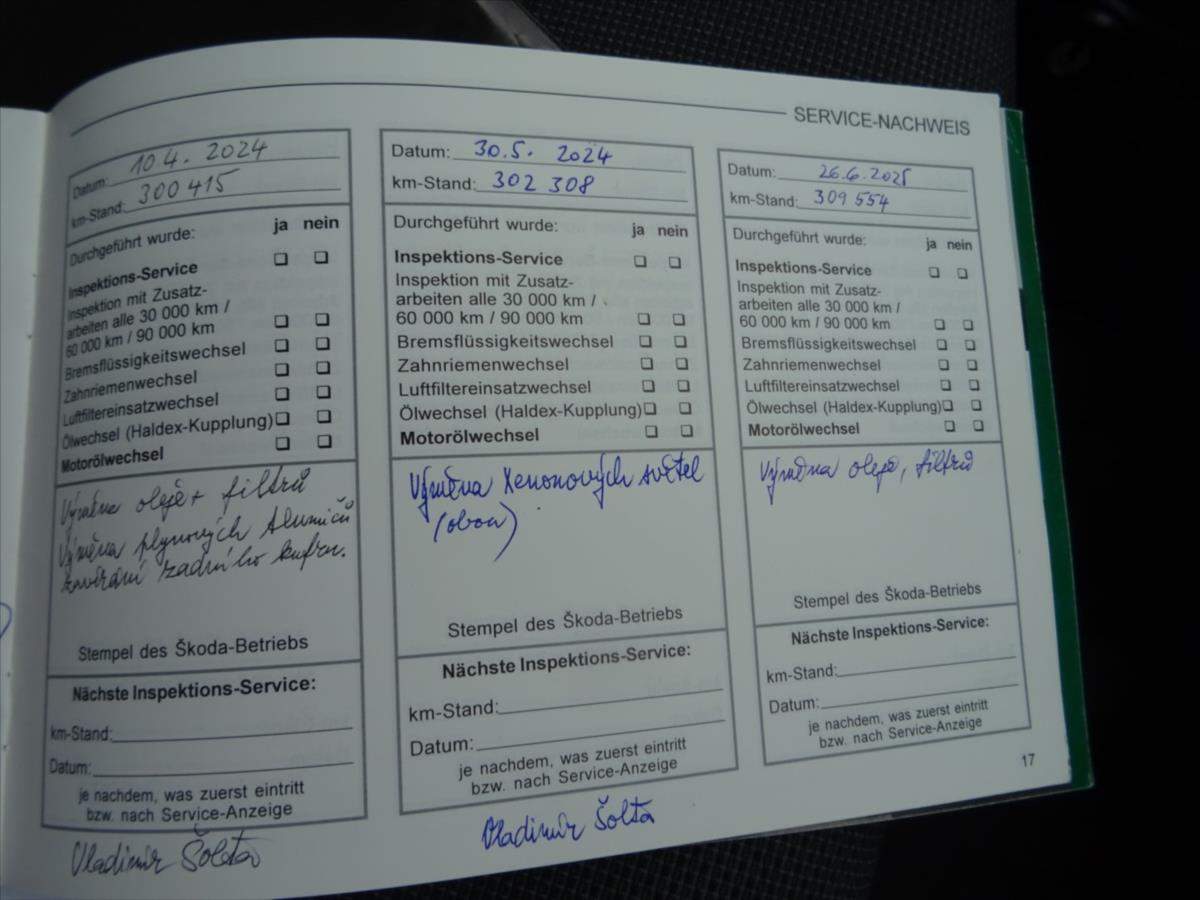 SERVICE-NACHWEIS
Datum: 10 4. 2024
km-Stand: 300 415
Durchgeführt wurde: ja nein
Inspektions-Service
Inspektion mit Zusatz-
arbeiten alle 30 000 km /
60 000 km / 90 000 km
Bremsflüssigkeitswechsel
Zahnriemenwechsel
Luftfiltereinsatzwechsel
Ölwechsel (Haldex-Kupplung)
Motorölwechsel
Výměna oleje + filtrů
Výměna plynových tlumičů
zavírání zadního kufru.
Stempel des Škoda-Betriebs
Nächste Inspektions-Service:
km-Stand:
Datum:
je nachdem, was zuerst eintritt
bzw. nach Service-Anzeige
Vladimír Šolta
Datum: 30.5. 2024
km-Stand: 302 308
Durchgeführt wurde: ja nein
Inspektions-Service
Inspektion mit Zusatz-
arbeiten alle 30 000 km /
60 000 km / 90 000 km
Bremsflüssigkeitswechsel
Zahnriemenwechsel
Luftfiltereinsatzwechsel
Ölwechsel (Haldex-Kupplung)
Motorölwechsel
Výměna Xenonových světel
(obou)
Stempel des Škoda-Betriebs
Nächste Inspektions-Service:
km-Stand:
Datum:
je nachdem, was zuerst eintritt
bzw. nach Service-Anzeige
Vladimír Šolta
Datum: 26.6.2025
km-Stand: 309 554
Durchgeführt wurde: ja nein
Inspektions-Service
Inspektion mit Zusatz-
arbeiten alle 30 000 km /
60 000 km / 90 000 km
Bremsflüssigkeitswechsel
Zahnriemenwechsel
Luftfiltereinsatzwechsel
Ölwechsel (Haldex-Kupplung)
Motorölwechsel
Výměna oleje, filtrů
Stempel des Škoda-Betriebs
Nächste Inspektions-Service:
km-Stand:
Datum:
je nachdem, was zuerst eintritt
bzw. nach Service-Anzeige
17